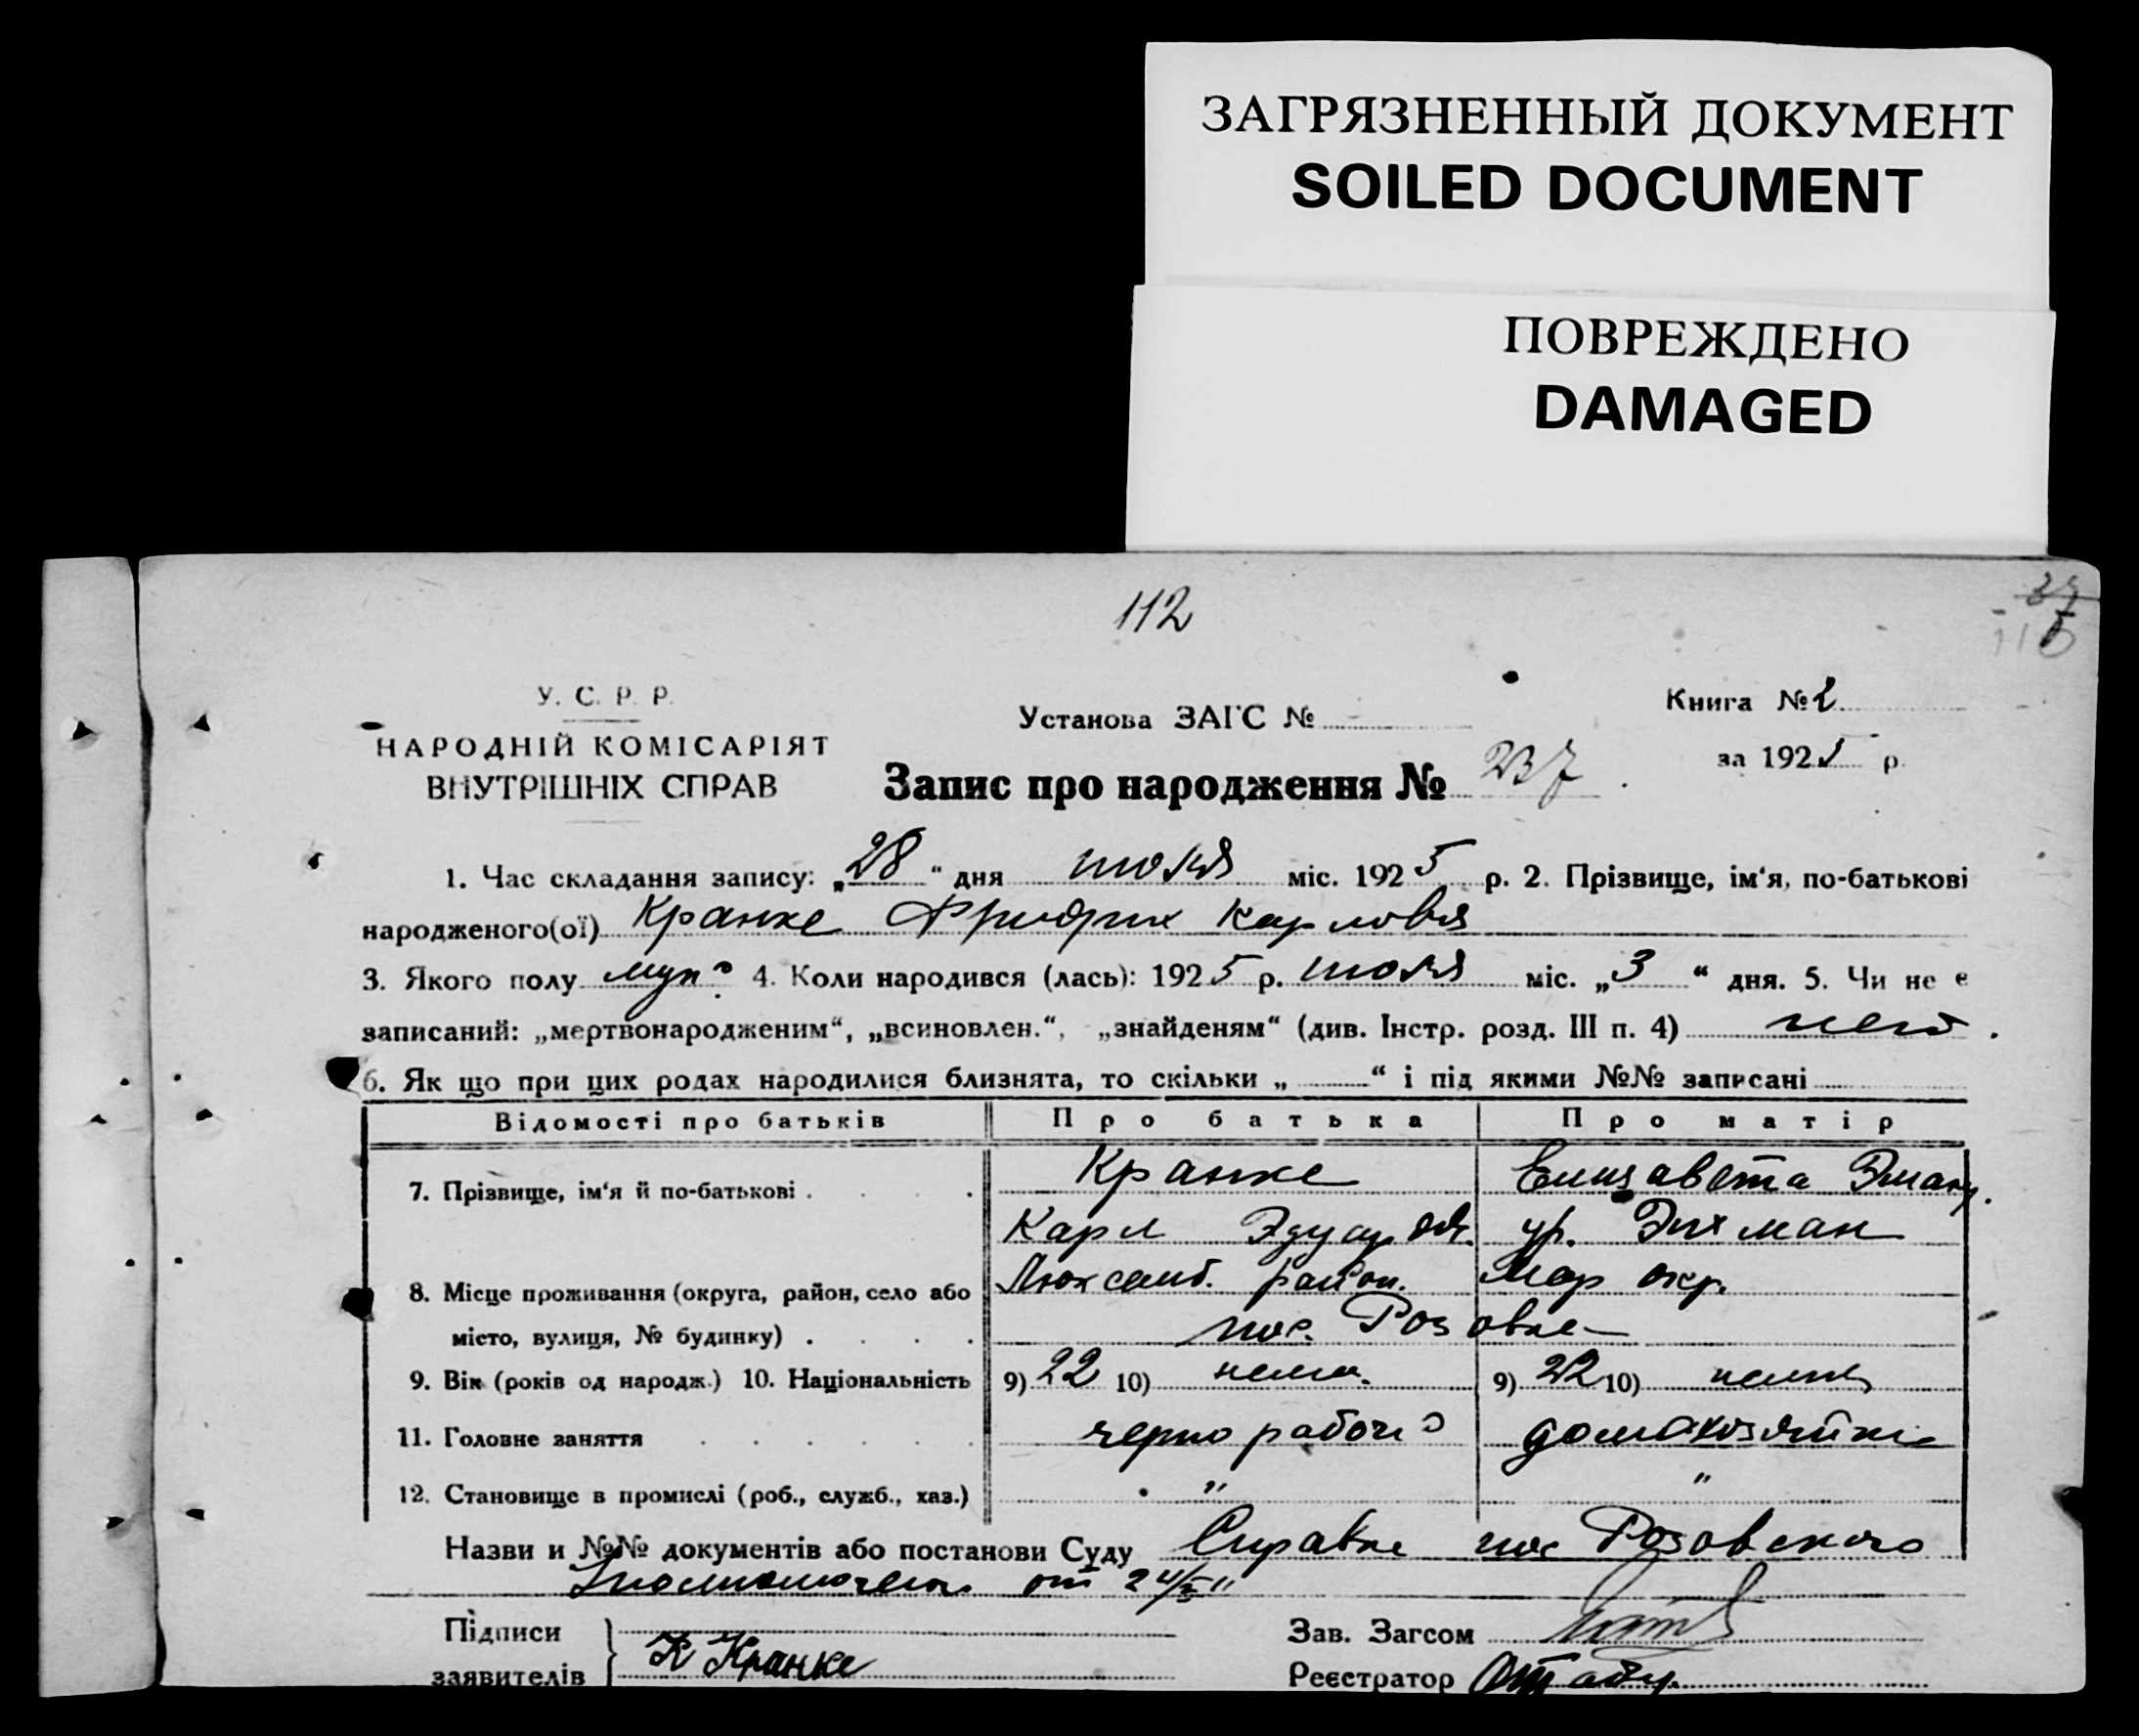 ЗАГРЯЗНЕННЫЙ ДОКУМЕНТ
SOILED DOCUMENT
ПОВРЕЖДЕНО
DAMAGED
112
У. С. Р. Р.
НАРОДНІЙ КОМІСАРІЯТ
ВНУТРІШНІХ СПРАВ
Установа ЗАГС №
Книга № 2
за 1925 р.
Запис про народження № 237
1. Час складання запису: „28" дня июля міс. 1925 р. 2. Прізвище, ім'я, по-батькові
народженого(ої) Кранке Фридрих Карловя
3. Якого полу муж. 4. Коли народився (лась): 1925 р. июля міс. „3" дня. 5. Чи не є
записаний: „мертвонародженим", „всиновлен.", „знайденям" (див. Інстр. розд. III п. 4) нет.
6. Як що при цих родах народилися близнята, то скільки „ " і під якими №№ записані
Відомості про батьків Про батька Про матір
7. Прізвище, ім'я й по-батькові . Кранке Елизавета Эман.
Карл Эдуардов. ур. Эихман
8. Місце проживання (округа, район, село або Люксемб. район. Мар окр.
місто, вулиця, № будинку) . пос. Розовке
9. Вік (років од народж.) 10. Національність 9) 22 10) немец. 9) 22 10) немк
11. Головне заняття чернорабочи домохозяйка
12. Становище в промислі (роб., служб., хаз.) " "
Назви и №№ документів або постанови Суду Справка пос Розовского
от 24/
Підписи
заявителів К Кранке
Зав. Загсом
Реєстратор